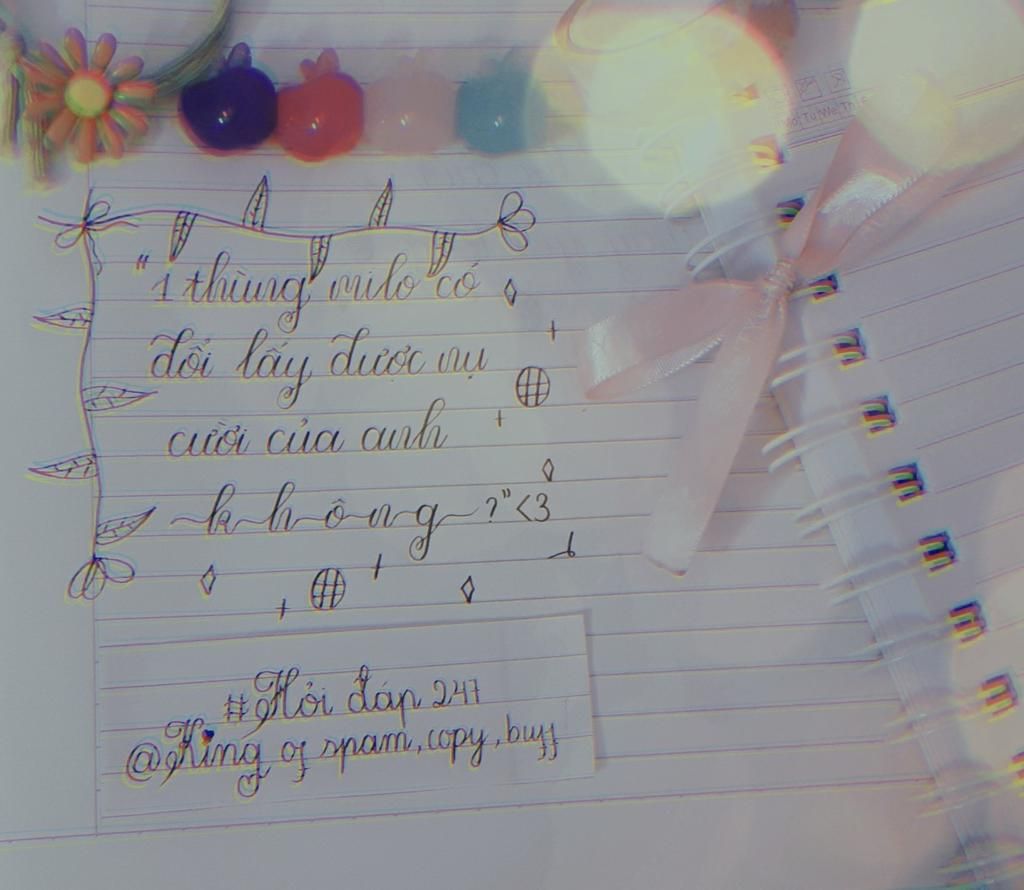 "1 thùng milo có
đổi lấy được nụ
cười của anh
~k~h~ô~n~g~?"<3
#Hỏi đáp 247
@King of spam, copy, buff
Mo Tu We Th F